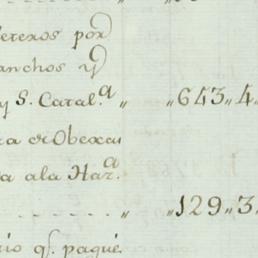 eteros por
anchos y
y S. Catal.ª " "643"4
ra de Obexas
a ala Har.ª
" "129"3
rio q.ᵉ pagué